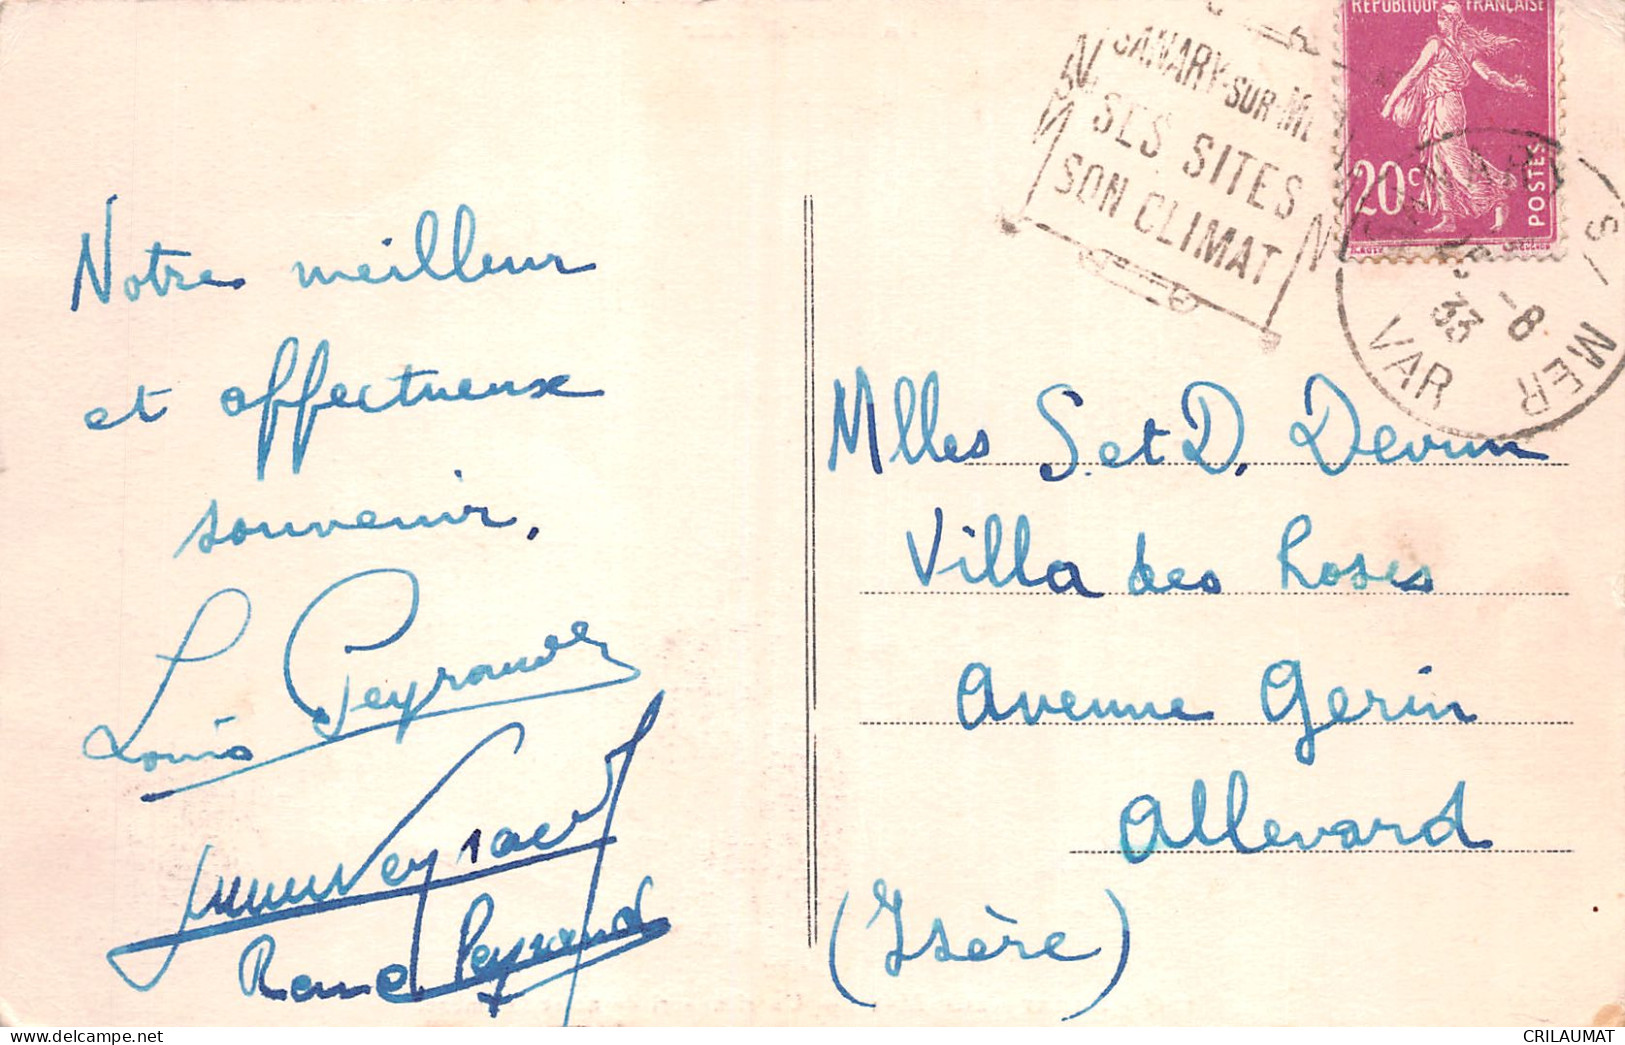 Notre meilleur
et affectueux
souvenir.
Louis Peyraud
René Peyraud
SANARY-SUR-ME
SES SITES
SON CLIMAT
REPUBLIQUE FRANÇAISE
20c
POSTES
S/ MER
VAR
-8
33
Mlles S. et D. Devun
Villa des Roses
Avenue Gerin
Allevard
(Isère)
CRILAUMAT